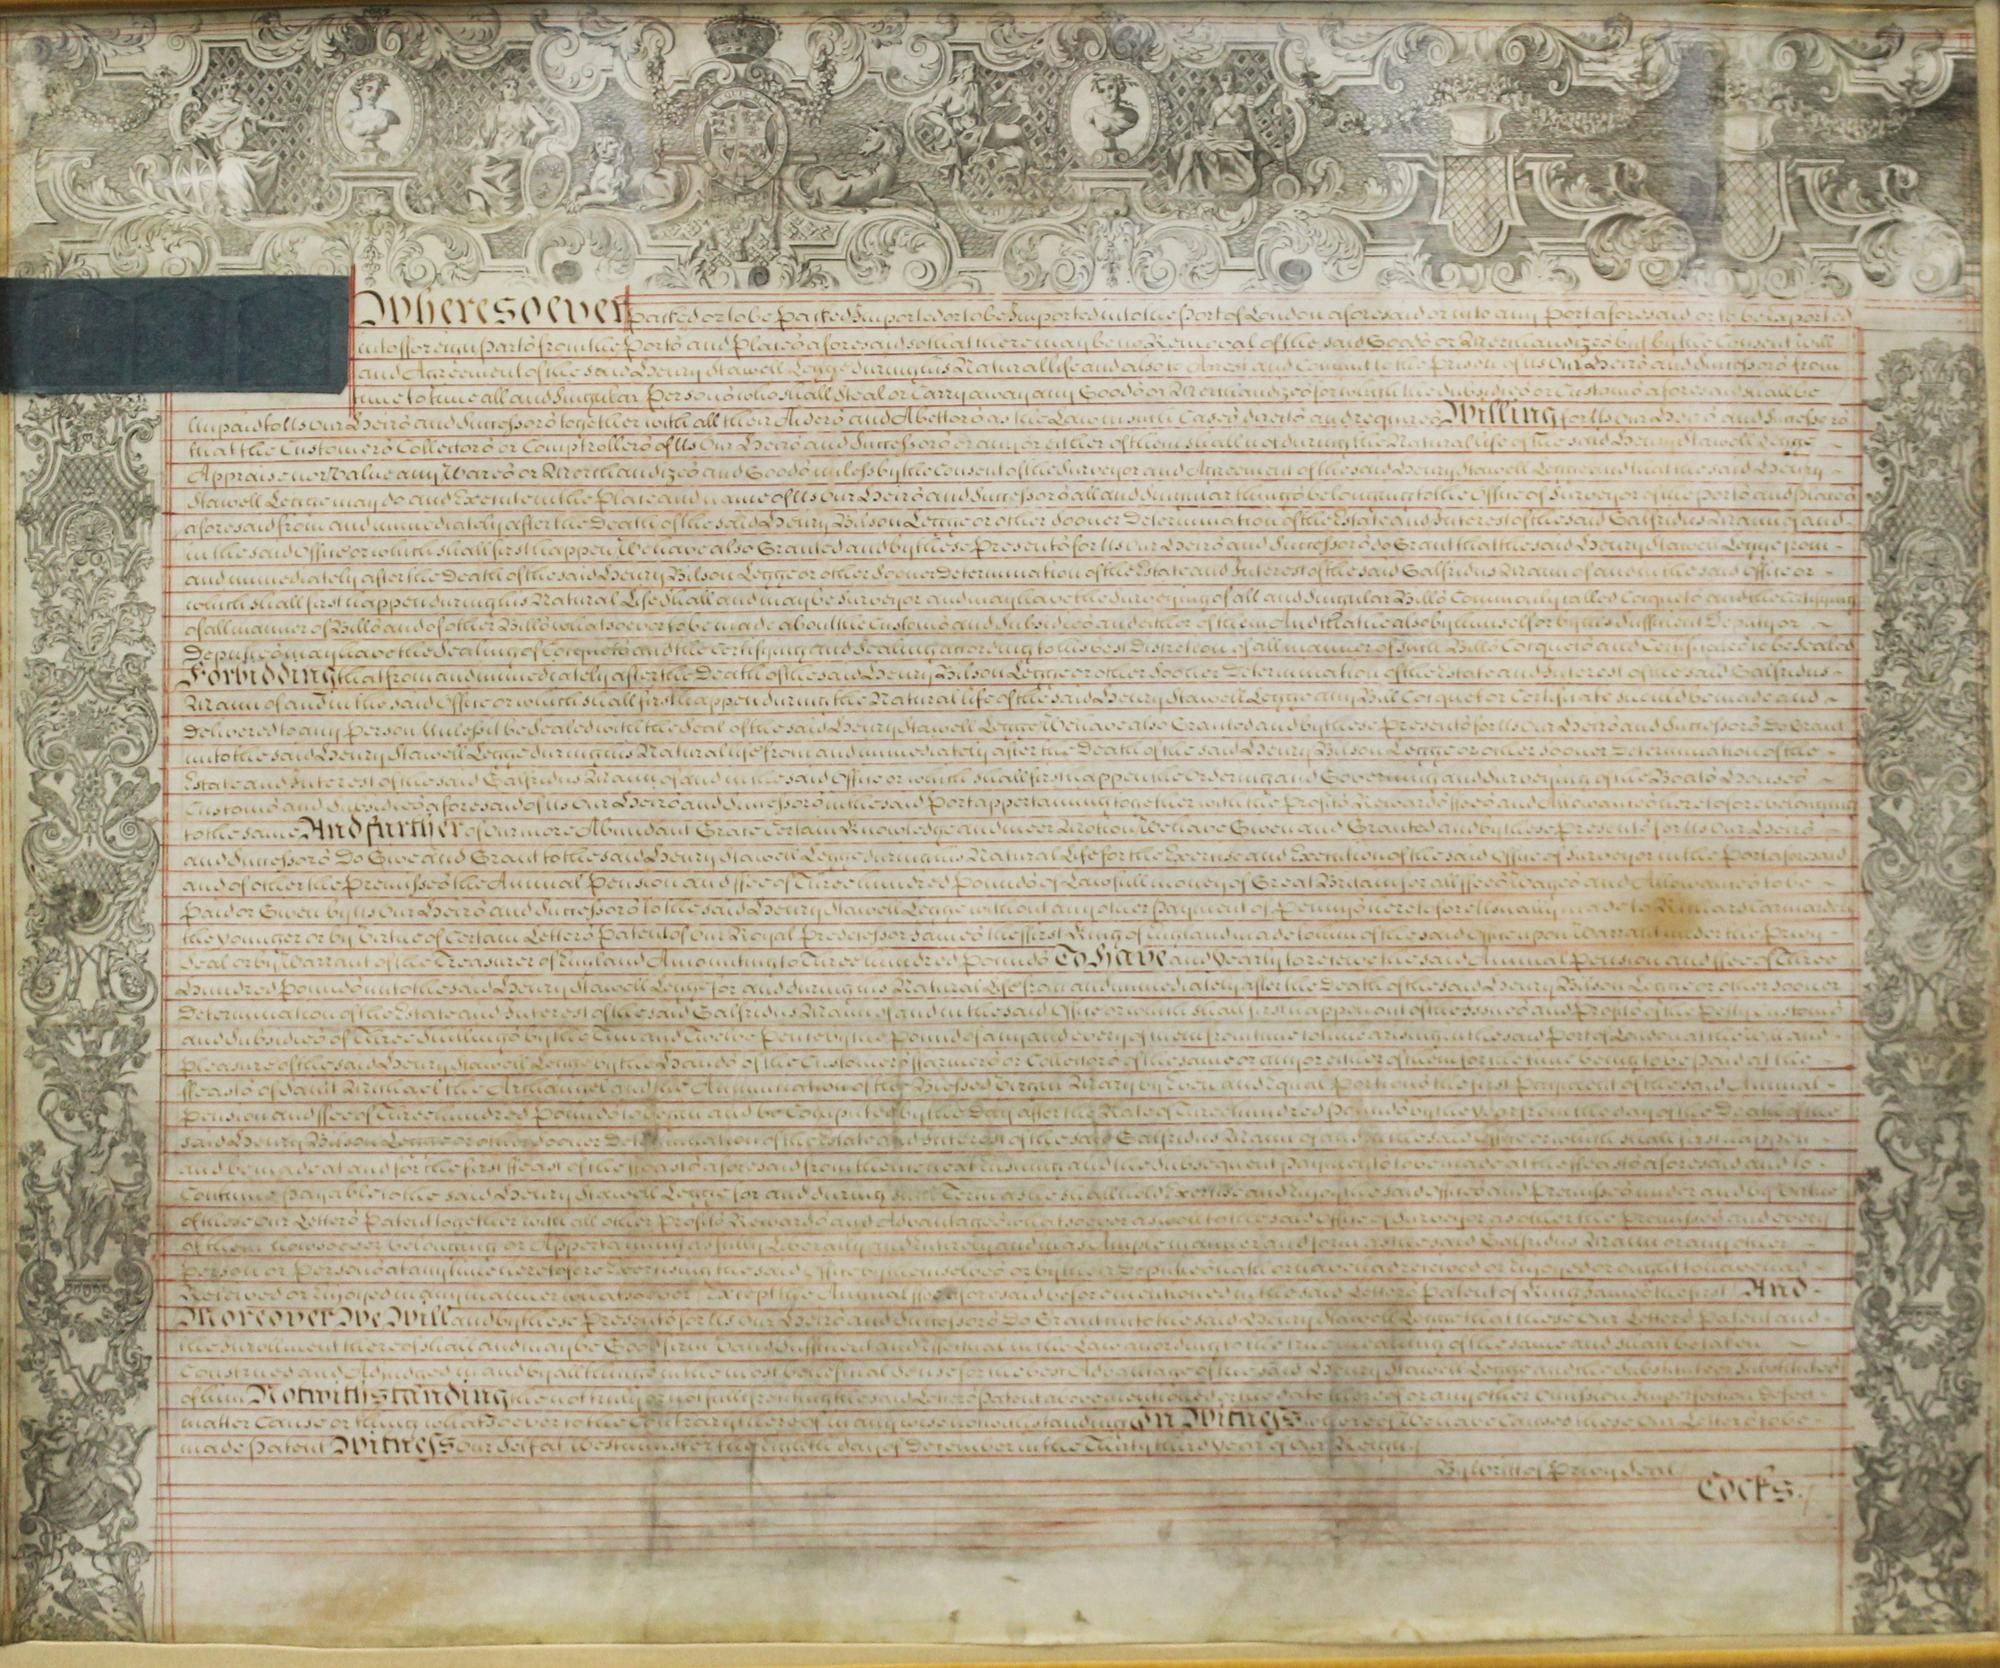 Wheresoever packed or to be packed Imported or to be Imported into the Port of London aforesaid or into any Port aforesaid or to be Exported
into fforeign Parts from the Ports and Places aforesaid so that there may be no Removal of the said Goods or Merchandizes but by the Consent Will
and Agreement of the said Henry Stawell Legge during his Natural life and also to Arrest and Commit to the Prison of us Our Heirs and Successors from
time to time all and Singular Persons who shall Steal or Carry away any Goods or Merchandizes for which the Subsidies or Customs aforesaid shall be
unpaid to Us Our Heirs and Successors together with all their Aiders and Abettors as the Law in such Cases directs and requires Willing for Us Our Heirs and Successors
that the Customers Collectors or Comptrollers of Us Our Heirs and Successors or any or either of them shall not during the Natural life of the said Henry Stawell Legge
Appraise nor Value any Wares or Merchandizes and Goods unless by the Consent of the Surveyor and Agreement of the said Henry Stawell Legge and that the said Henry
Stawell Legge may do and Execute in the Place and name of Us Our Heirs and Successors all and Singular things belonging to the Office of Surveyor of the Ports and Places
aforesaid from and immediately after the Death of the said Henry Bilson Legge or other Sooner Determination of the Estate and Interest of the said Galfridus Mann of and
in the said Office or which shall first happen We have also Granted and by these Presents for Us Our Heirs and Successors do Grant that the said Henry Stawell Legge from
and immediately after the Death of the said Henry Bilson Legge or other Sooner Determination of the Estate and Interest of the said Galfridus Mann of and in the said Office or
which shall first happen during his Natural Life Shall and may be Surveyor and may have the Surveying of all and Singular Bills Commonly called Cocquets and the Certifying
of all manner of Bills and of other Bills whatsoever to be made about the Customs and Subsidies and either of them And that he also by himself or by his Sufficient Deputy or
Deputies may have the Sealing of Cocquets and the Certifying and Sealing according to his best Discretion of all manner of such Bills Cocquets and Certificates to be Sealed
Forbidding that from and immediately after the Death of the said Henry Bilson Legge or other Sooner Determination of the Estate and Interest of the said Galfridus
Mann of and in the said Office or which shall first happen during the Natural life of the said Henry Stawell Legge any Bill Cocquet or Certificate should be made and
delivered to any Person Unless it be Sealed with the Seal of the said Henry Stawell Legge We have also Granted and by these Presents for Us Our Heirs and Successors Do Grant
unto the said Henry Stawell Legge during his Natural life from and immediately after the Death of the said Henry Bilson Legge or other Sooner Determination of the
Estate and Interest of the said Galfridus Mann of and in the said Office or which shall first happen the Ordering and Governing and Surveying of the Boats Houses
Customs and Subsidies aforesaid of us Our Heirs and Successors in the said Port appertaining together with the Profits Rewards ffees and Allowances heretofore belonging
to the same And further of Our more Abundant Grace Certain Knowledge and meer Motion We have Given and Granted and by these Presents for Us Our Heirs
and Successors Do Give and Grant to the said Henry Stawell Legge during his Natural Life for the Exercise and Execution of the said Office of Surveyor in the Port aforesaid
and of other the Premisses the Annual Pension and ffee of Three hundred Pounds of Lawfull money of Great Britain for all ffees Wages and Allowances to be
paid or Given by Us Our Heirs and Successors to the said Henry Stawell Legge without any other Payment of Pennys heretofore Usually made to Richard Carmarden
the Younger or by Virtue of Certain Letters Patent of Our Royal Predecessor James the ffirst King of England made to him of the said Office upon Warrant under the Privy
Seal or by Warrant of the Treasurer of England Amounting to Three hundred Pounds To have and Yearly to receive the said Annual Pension and ffee of Three
Hundred Pounds unto the said Henry Stawell Legge for and during his Natural Life from and immediately after the Death of the said Henry Bilson Legge or other Sooner
Determination of the Estate and Interest of the said Galfridus Mann of and in the said Office or which shall first happen out of the Issues and Profits of the Petty Customs
and Subsidies of Three Shillings by the Tun and Twelve Pence by the Pound of any and every of them from time to time arising in the said Port of London at the Will and
Pleasure of the said Henry Stawell Legge by the Hands of the Customers ffarmers or Collectors of the same or any or either of them for the time being to be paid at the
ffeasts of Saint Michael the Archangel and the Annunciation of the Blessed Virgin Mary by Even and Equal Portions the first Payment of the said Annual
Pension and ffee of Three hundred Pounds to begin and be Computed by the Day after the Rate of Three hundred Pounds by the Year from the day of the Death of the
said Henry Bilson Legge or other Sooner Determination of the Estate and Interest of the said Galfridus Mann of and in the said Office or which shall first happen
and be made at and for the first ffeast of the ffeasts aforesaid from thence next Ensuing and the Subsequent payments to be made at the ffeasts aforesaid and to
Continue payable to the said Henry Stawell Legge for and during such Term as he shall hold Exercise and Enjoy the said Offices and Premisses under and by Virtue
of these Our Letters Patent together with all other Profits Rewards and Advantages whatsoever as well to the said Office of Surveyor as other the Premisses and every
of them howsoever belonging or Appertaining as fully Liberally and Entirely and in as Ample manner and form as the said Galfridus Mann or any other
Person or Persons at any time heretofore Exercising the said Office by themselves or by their Deputies hath or have had received or Enjoyed or ought to have had
Received or Enjoyed in any manner whatsoever Except the Annual ffee aforesaid before mentioned in the said Letters Patent of King James the first And
Moreover We Will and by these Presents for Us Our Heirs and Successors Do Grant unto the said Henry Stawell Legge that these Our Letters Patent and
the Enrollment thereof shall and may be Good firm Valid Sufficient and Effectual in the Law according to the true meaning of the same and shall be taken
Construed and Adjudged in and by all things in the most beneficial Sense for the best Advantage of the said Henry Stawell Legge and the Substitute or Substitutes
of him Notwithstanding the not truly or not fully reciting the said Letters Patent aforementioned or the date thereof or any other Omission Imperfection Defect
matter Cause or thing whatsoever to the Contrary thereof in any wise notwithstanding In Witness whereof We have Caused these Our Letters to be
made Patent Witness Our Self at Westminster the Eighth day of December in the Thirty third Year of Our Reign
By Writ of Privy Seal
Cocks.